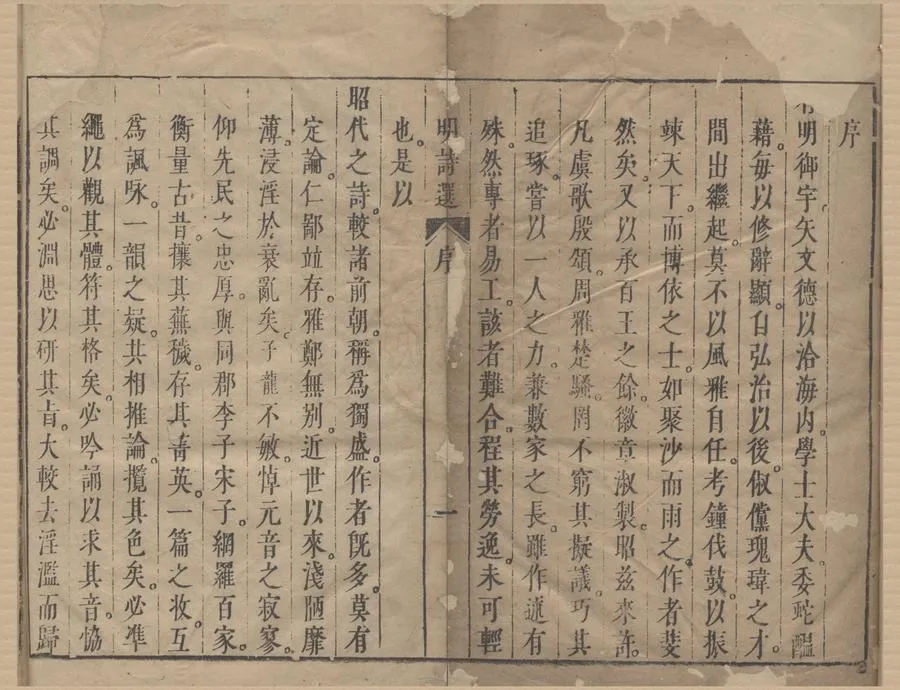 序
明御宇矢文德以洽海內學士大夫委蛇醞
藉每以修辭顯自弘治以後俶儻瑰瑋之才
間出繼起莫不以風雅自任考鐘伐鼓以振
竦天下而博依之士如聚沙而雨之作者斐
然矣又以承百王之餘徽章淑製昭茲來許
凡虞歌殷頌周雅楚騷罔不窮其擬議巧其
追琢嘗以一人之力兼數家之長雖作述有
殊然專者易工該者難合程其勞逸未可輕
明詩選 序 一
也是以
昭代之詩較諸前朝稱為獨盛作者既多莫有
定論仁鄙竝存雅鄭無別近世以來淺陋靡
薄浸淫於衰亂矣子龍不敏悼元音之寂寥
仰先民之忠厚與同郡李子宋子網羅百家
衡量古昔攘其蕪穢存其菁英一篇之收互
為諷咏一韻之疑共相推論攬其色矣必準
繩以觀其體符其格矣必吟誦以求其音協
其調矣必淵思以研其旨大較去淫濫而歸